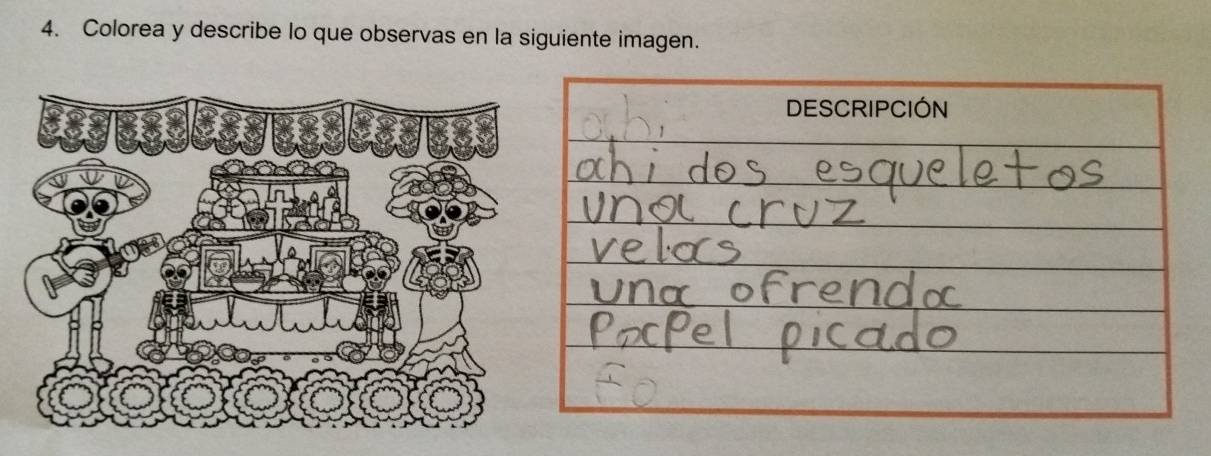 4. Colorea y describe lo que observas en la siguiente imagen.
DESCRIPCIÓN
ahi
ahi dos esqueletos
una cruz
velas
una ofrenda
Pacpel picado
Fo